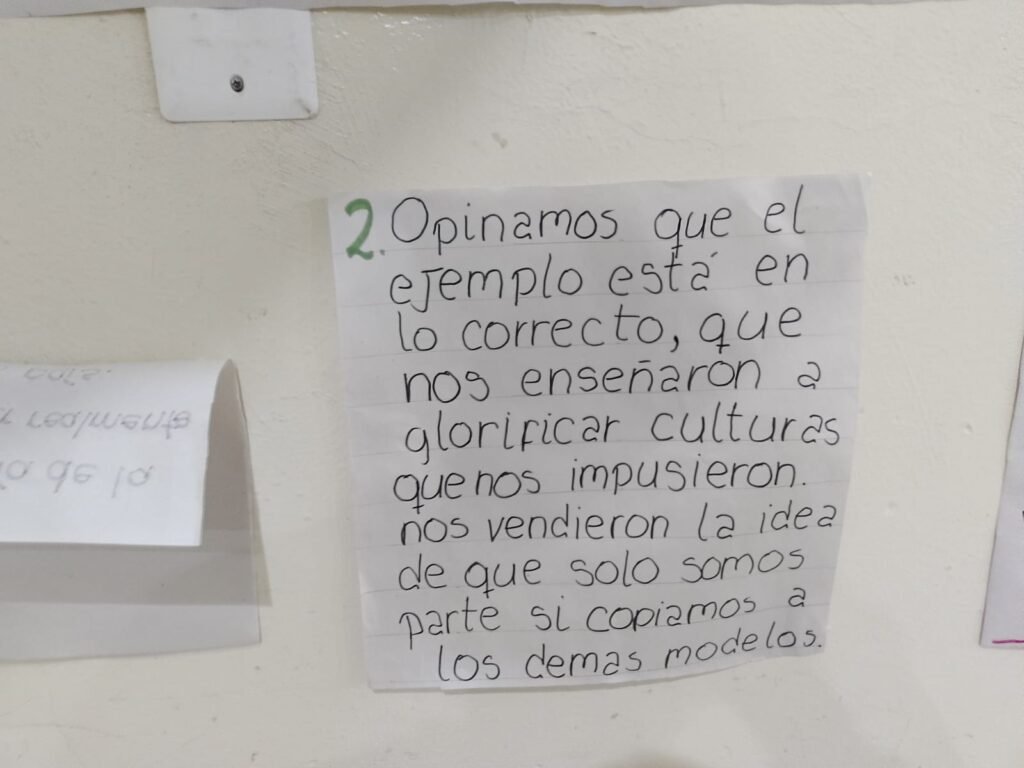 2. Opinamos que el
ejemplo está en
lo correcto, que
nos enseñaron a
glorificar culturas
que nos impusieron.
nos vendieron la idea
de que solo somos
parte si copiamos a
los demas modelos.
realmente
de la